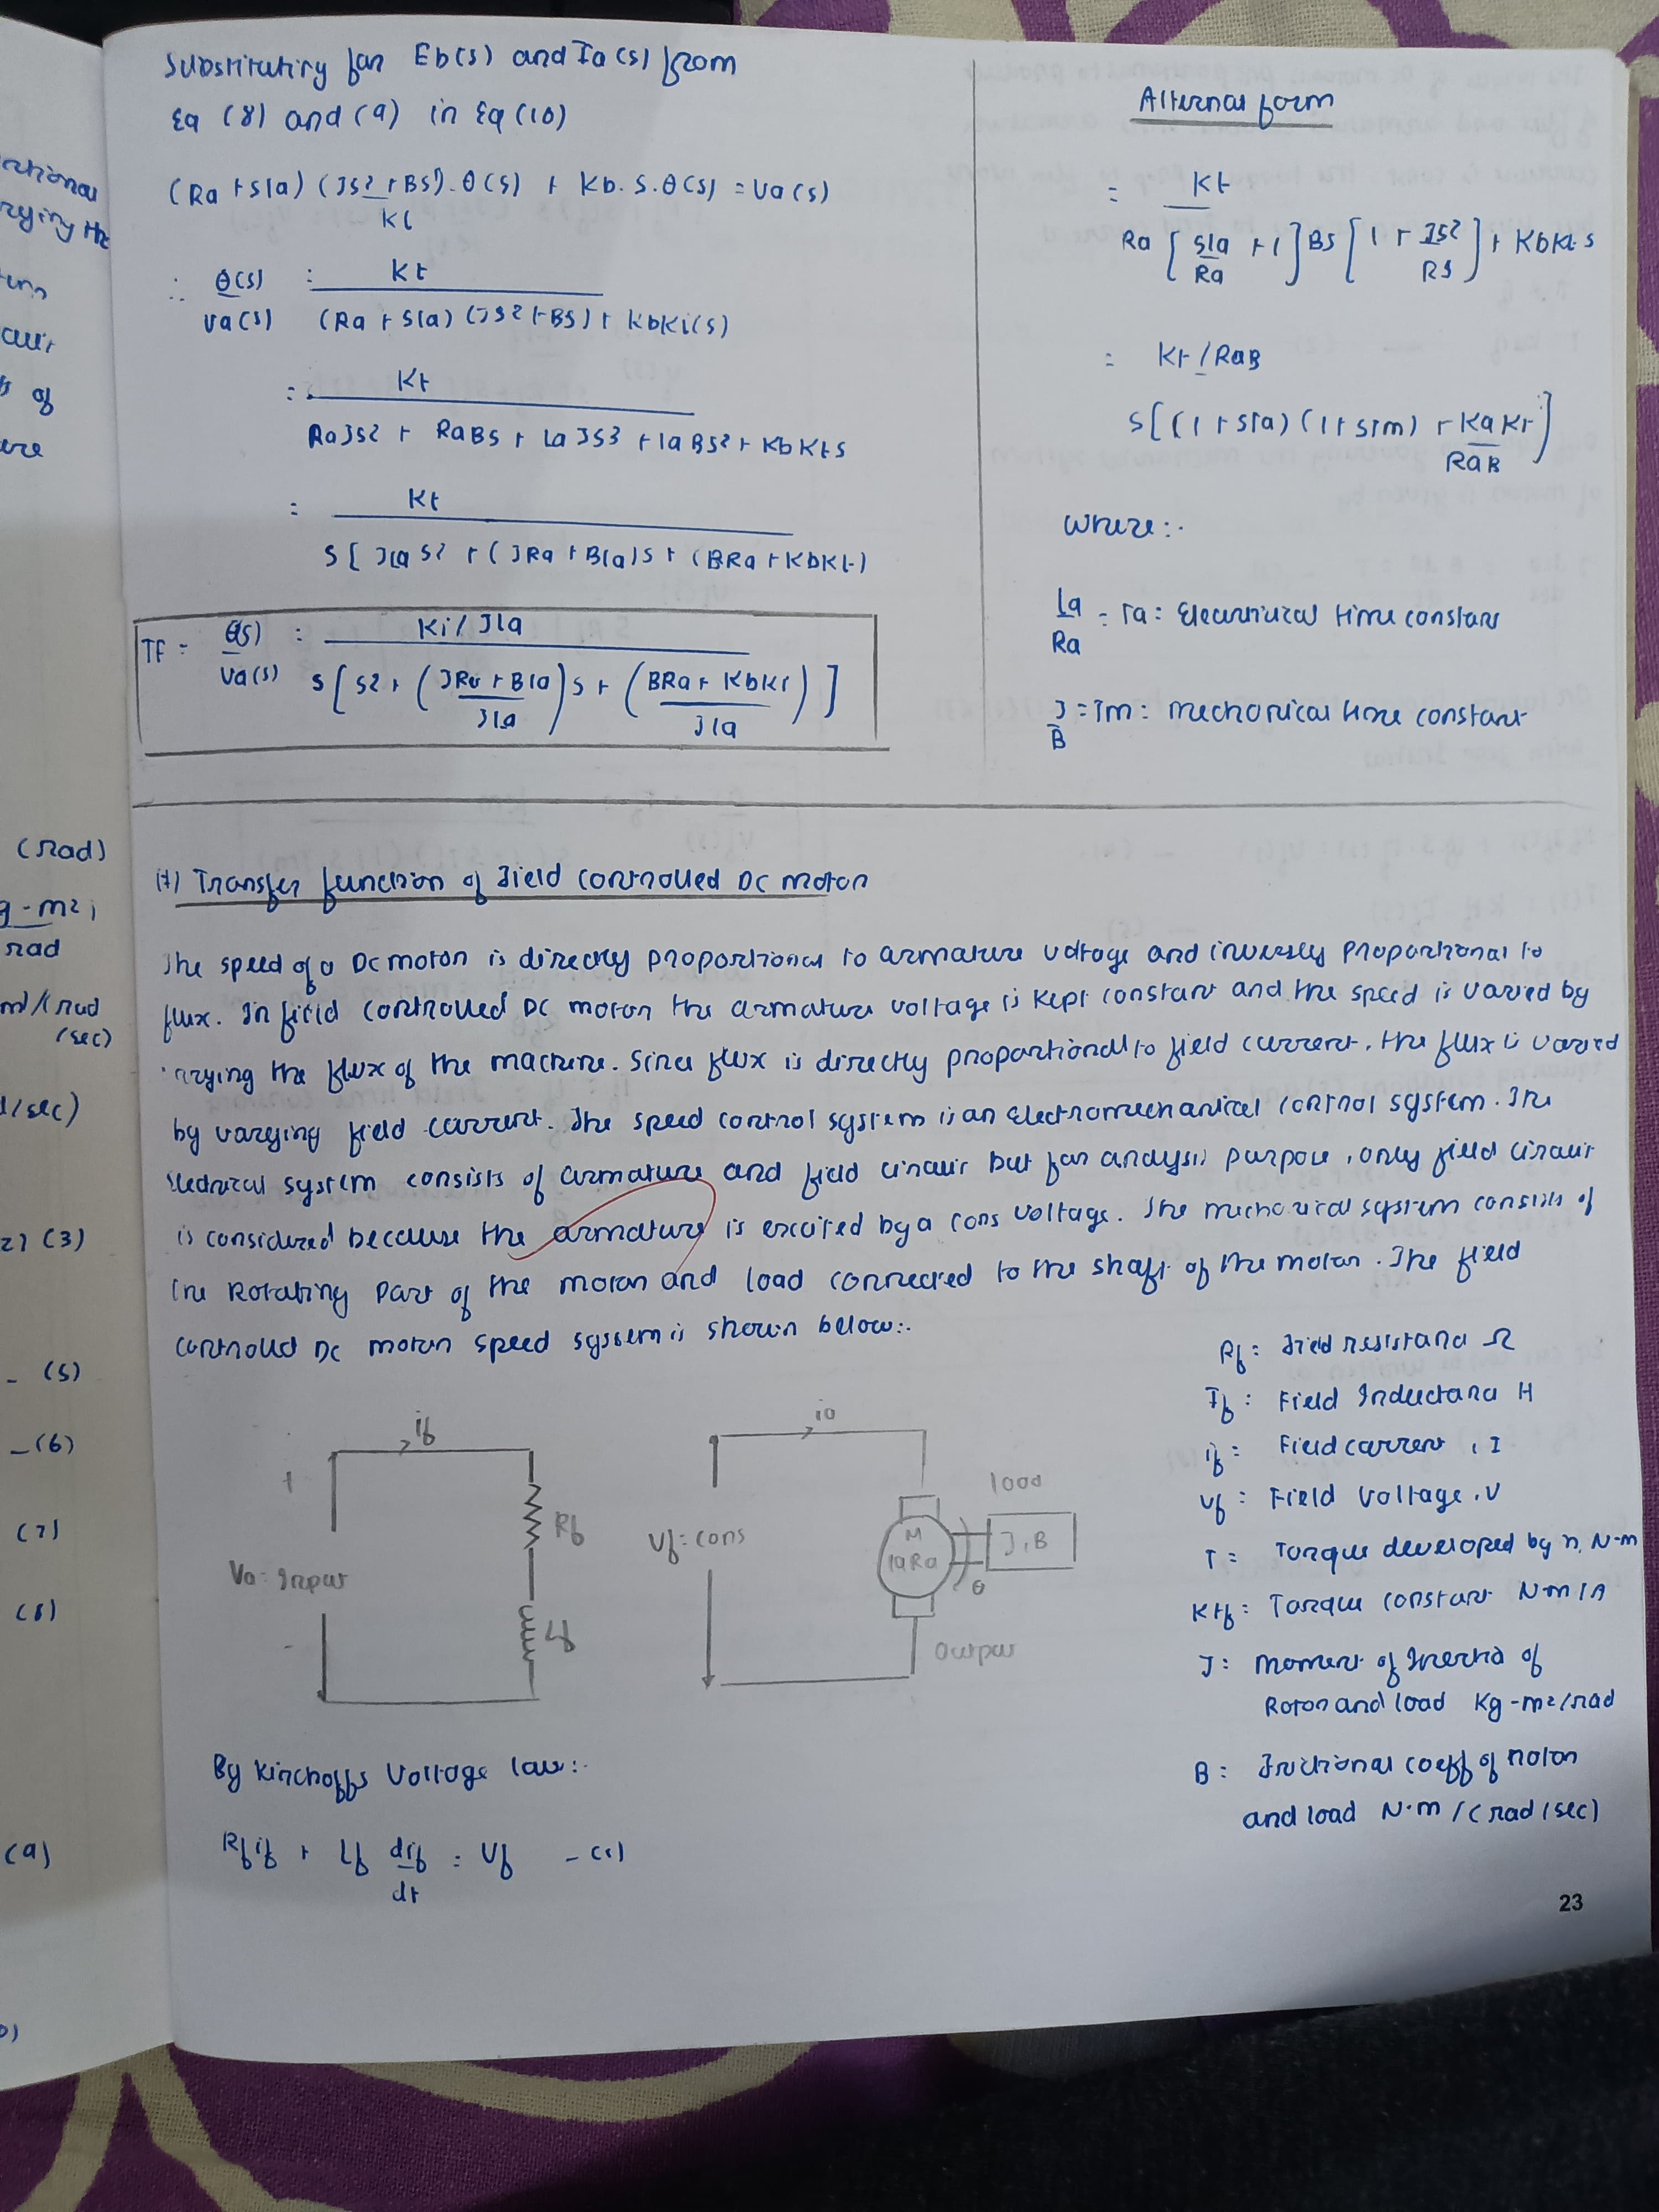 Substituting for Eb(s) and Ia(s) from
Eq (8) and (9) in Eq (10)
(Ra + sla) (Js2 + Bs) . θ(s) + Kb. s. θ(s) = Va(s)
Kt
∴ θ(s) = Kt
Va(s) (Ra + sla) (Js2 + Bs) + KbKt(s)
= Kt
RaJs2 + RaBs + LaJs3 + laBs2 + KbKts
= Kt
s [ Jla s2 + (JRa + Bla)s + (BRa + KbKt)
TF = θ(s) = Kt / Jla
Va(s) s [ s2 + ( JRa + Bla ) s + ( BRa + KbKt ) ]
Jla Jla
Alternat form
= Kt
Ra [ sla + 1 ] Bs [ 1 + Js2 ] + KbKt s
Ra Bs
= Kt / RaB
s [ (1 + sTa) (1 + sTm) + KaKt ]
RaB
where:-
La = Ta = Electrical time constant
Ra
J = Tm = mechanical time constant
B
(7) Transfer function of Field controlled DC motor
The speed of a DC motor is directly proportional to armature voltage and inversly proportional to
flux. In field controlled DC motor the armature voltage is kept constant and the speed is varied by
varying the flux of the machine. Since flux is directly proportional to field current, the flux is varied
by varying field current. The speed control system is an electromechanical control system. The
electrical system consists of armature and field circuit but for analysis purpose, only field circuit
is considered because the armature is excited by a cons voltage. The mechanical system consists of
the Rotating part of the motor and load connected to the shaft of the motor. The field
controlled DC motor speed system is shown below:-
if
+
Va = Input
-
Rf
Lf
ia
Vf = cons
M
laRa
θ
load
J, B
Output
Rf = Field resistance Ω
If = Field Inductance H
if = Field current, I
Vf = Field Voltage, V
T = Torque developed by n, N-m
Ktf = Torque constant N-m/A
J = Moment of Inertia of
Rotor and load Kg-m2/rad
B = Frictional coeff of rotor
and load N.m/(rad/sec)
By Kirchoffs Voltage law:-
Rfif + Lf dif = Vf - (1)
dt
23
(rad)
g-m2,
rad
m/(rad
/sec)
d/sec)
(3)
- (5)
- (6)
(7)
(8)
(9)